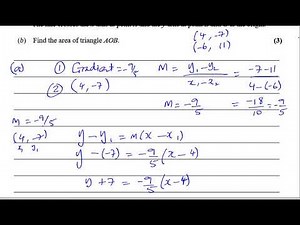 (b) Find the area of triangle AOB. (3)
(4, -7)
(-6, 11)
(a) ① Gradient = -9/5
② (4, -7)
M = y₁ - y₂ / x₁ - x₂ = -7 - 11 / 4 - (-6)
M = -9/5 = -18/10 = -9/5
M = -9/5
(4, -7)
x₁ y₁
y - y₁ = m(x - x₁)
y - (-7) = -9/5 (x - 4)
y + 7 = -9/5 (x - 4)